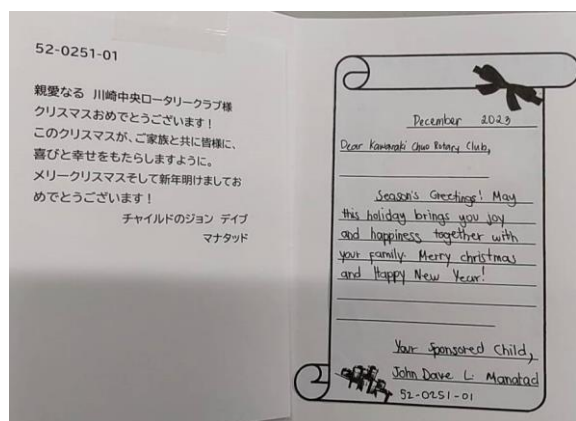 52-0251-01
親愛なる 川崎中央ロータリークラブ様
クリスマスおめでとうございます!
このクリスマスが、ご家族と共に皆様に、
喜びと幸せをもたらしますように。
メリークリスマスそして新年明けましてお
めでとうございます!
チャイルドのジョン デイブ
マナタッド
December 2023
Dear Kawasaki Chuo Rotary Club,
Season's Greetings! May
this holiday brings you joy
and happiness together with
your family. Merry christmas
and Happy New Year!
Your Sponsored Child,
John Dave L. Manatad
52-0251-01